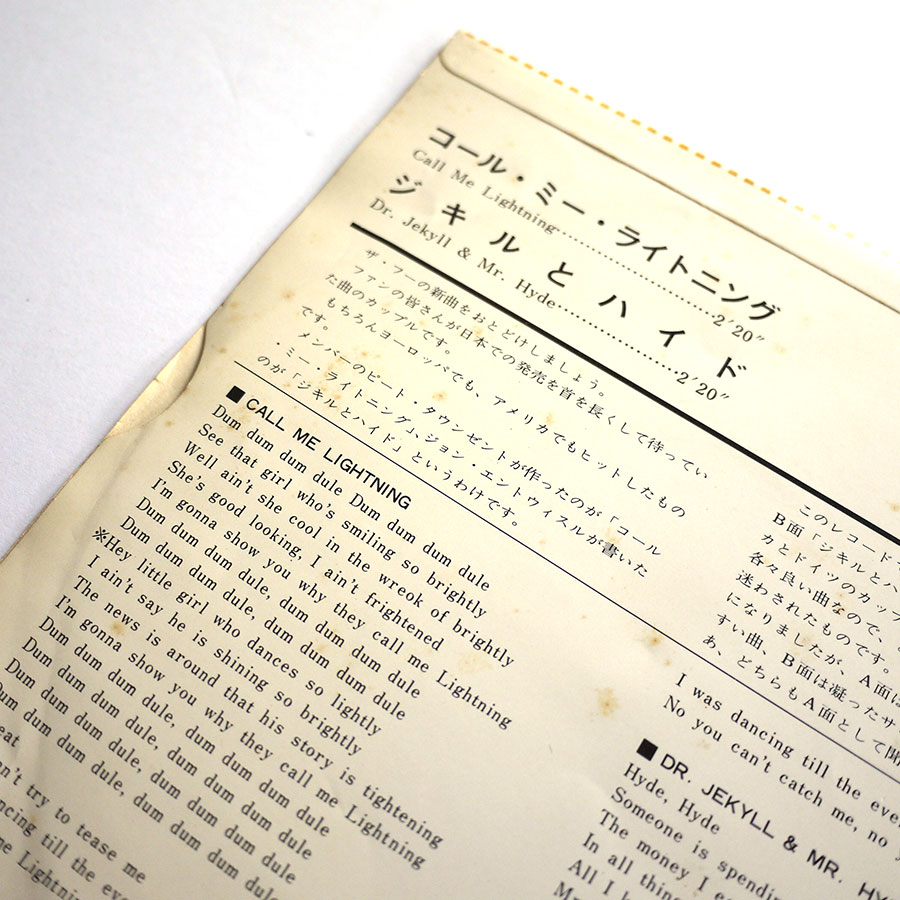 コール・ミー・ライトニング
Call Me Lightning……………………2′20″
ジキルとハイド
Dr. Jekyll & Mr. Hyde……………………2′20″
ザ・フーの新曲をおとどけしましょう。
ファンの皆さんが日本での発売を首を長くして待ってい
た曲のカップルです。
もちろんヨーロッパでも、アメリカでもヒットしたもの
です。
メンバーのピート・タウンゼントが作ったのが「コール
・ミー・ライトニング」、ジョン・エントウィスルが書いた
のが「ジキルとハイド」というわけです。
このレコード
B面「ジキルとハ
カとドイツのカップ
各々良い曲なので、
迷わされたものです。
になりましたが、A面は
すい曲、B面は凝ったサ
あ、どちらもA面として聞
■CALL ME LIGHTNING
Dum dum dum dule Dum dum dum dule
See that girl who's smiling so brightly
Well ain't she cool in the wreok of brightly
She's good looking, I ain't frightened
I'm gonna show you why they call me Lightning
Dum dum dum dule, dum dum dum dule
Dum dum dum dule, dum dum dum dule
※Hey little girl who dances so lightly
I ain't say he is shining so brightly
The news is around that his story is tightening
I'm gonna show you why they call me Lightning
Dum dum dum dule, dum dum dum dule
Dum dum dum dule, dum dum dum dule
Dum dum dum dule, dum dum dum dule
Dum dum dum dule, dum dum dum dule
eat
n't try to tease me
ncing till the eve
me Lightnin
I was dancing till the eve
No you can't catch me, no
■DR. JEKYLL & MR. HY
Hyde, Hyde
Someone is spendi
The money I e
In all thing
All I